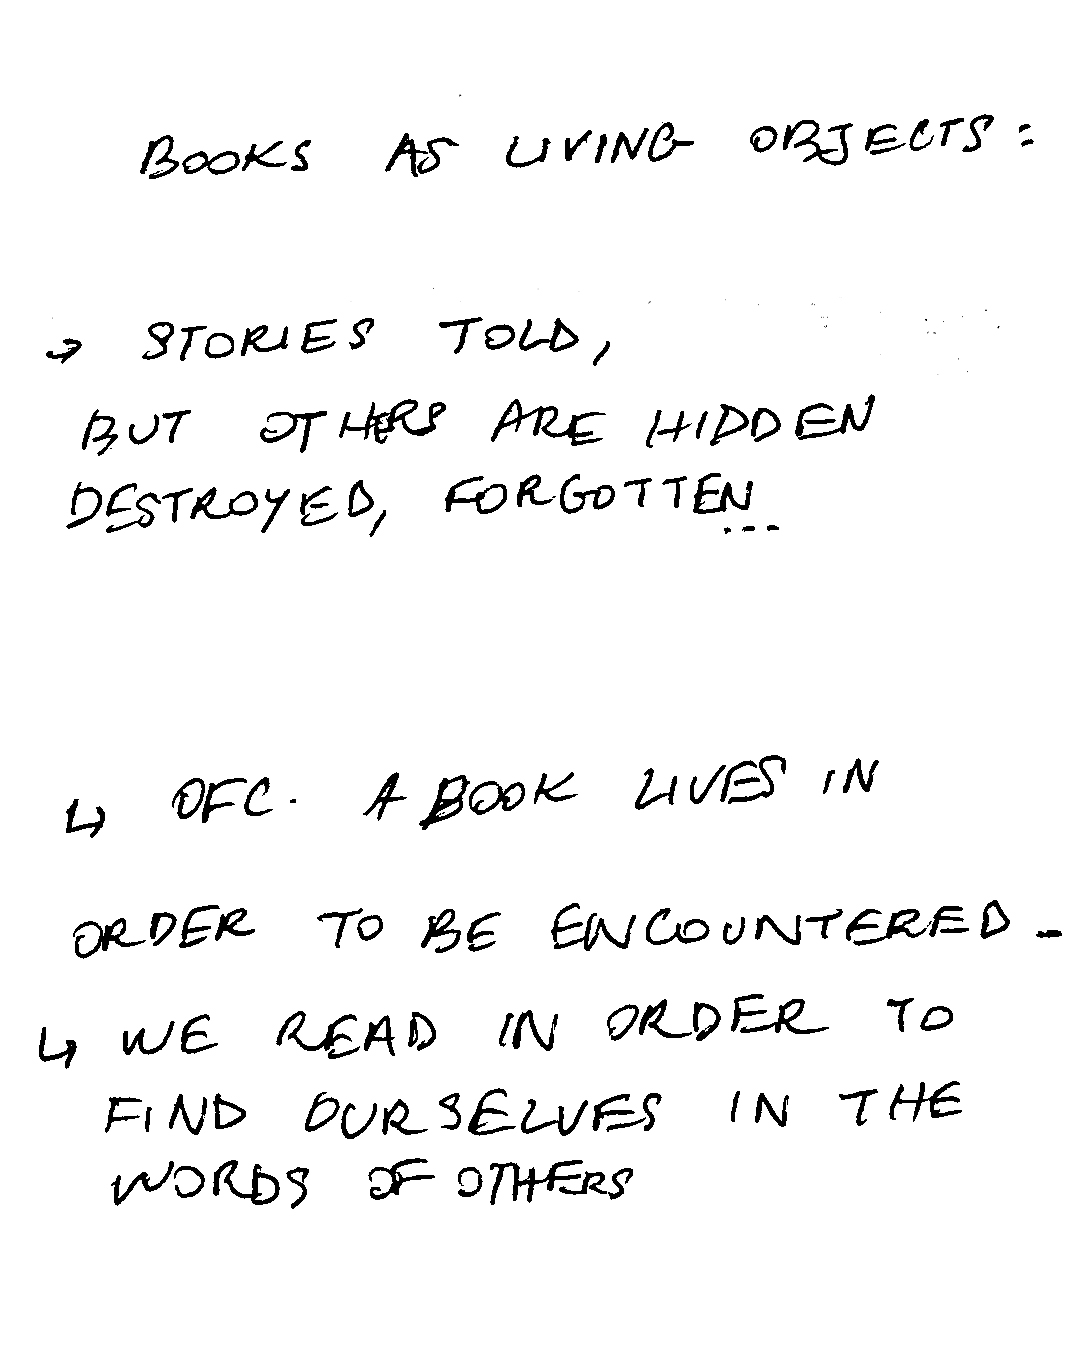 BOOKS AS LIVING OBJECTS:
→ STORIES TOLD,
BUT OTHERS ARE HIDDEN
DESTROYED, FORGOTTEN...
↳ OFC. A BOOK LIVES IN
ORDER TO BE ENCOUNTERED -
↳ WE READ IN ORDER TO
FIND OURSELVES IN THE
WORDS OF OTHERS